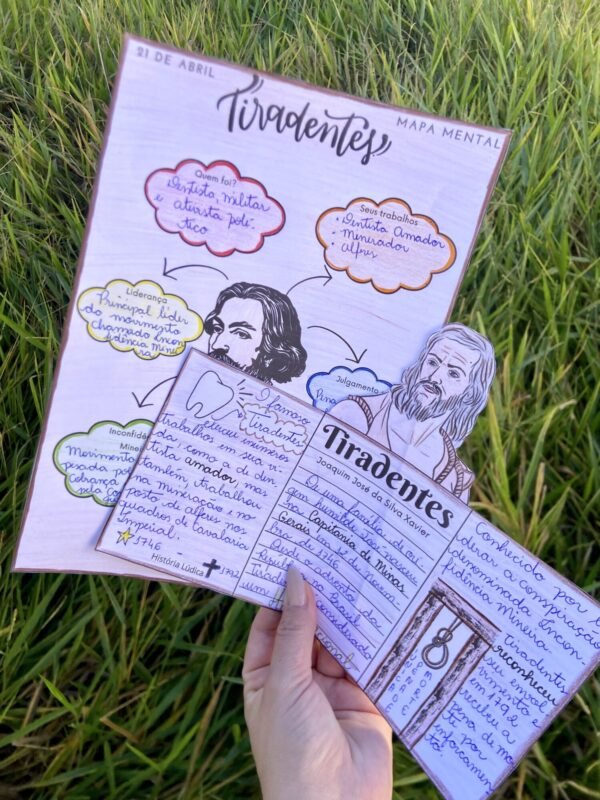 21 DE ABRIL
Tiradentes
MAPA MENTAL
Quem foi?
Dentista, militar
e ativista polí-
tico
Seus trabalhos
• Dentista Amador
• minerador
• alferes
Liderança
Principal líder
do movimento
chamado Incon
fidência Minei
ra
Julgamento
Inconfid
Minei
Movimento
pesada po
Cobrança
pela
O famoso
Tiradentes
trabalhos em sua vi
da, como a di den
tista amador, mas
também, trabalhou
na mineração e no
posto de alferes nos
quadros de cavalaria
imperial.
1746
História Lúdica
1792
Tiradentes
Joaquim José da Silva Xavier
uma família de ori
gem humilde
na Capitania de Minas
Gerais em 12 de Novem
bro de 1746.
no Brasil
um
Conhecido por li
derar a conspiração
denominada Incon
fidência Mineira
Tiradentes
reconheceu
seu envol
vimento e
em 1792
recebeu a
pena de mor
te por
enforcament
o.